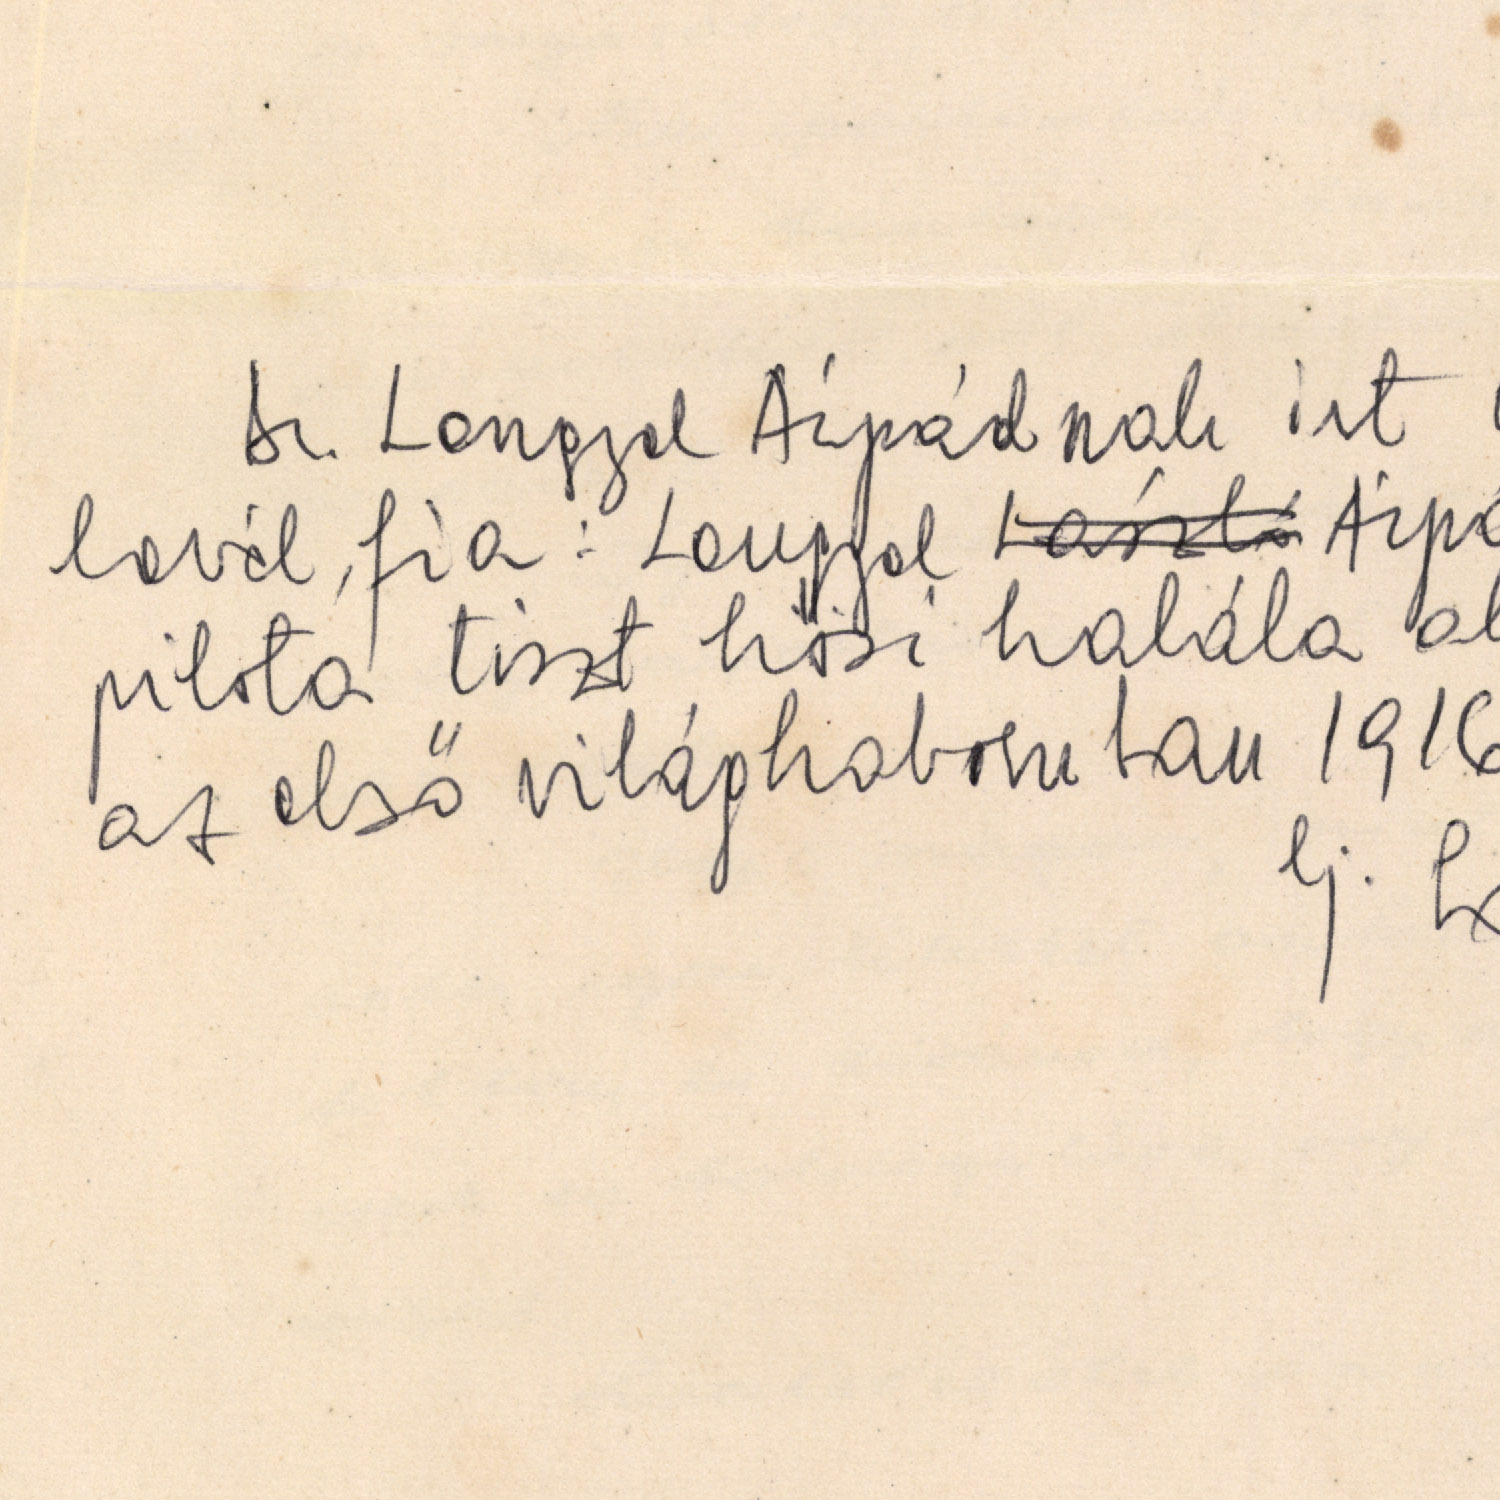 Dr. Lengyel Árpádnak írt
levél, fia: Lengyel László Árpá
pilóta tiszt hősi halála al
az első világháborúban 1916
ifj.